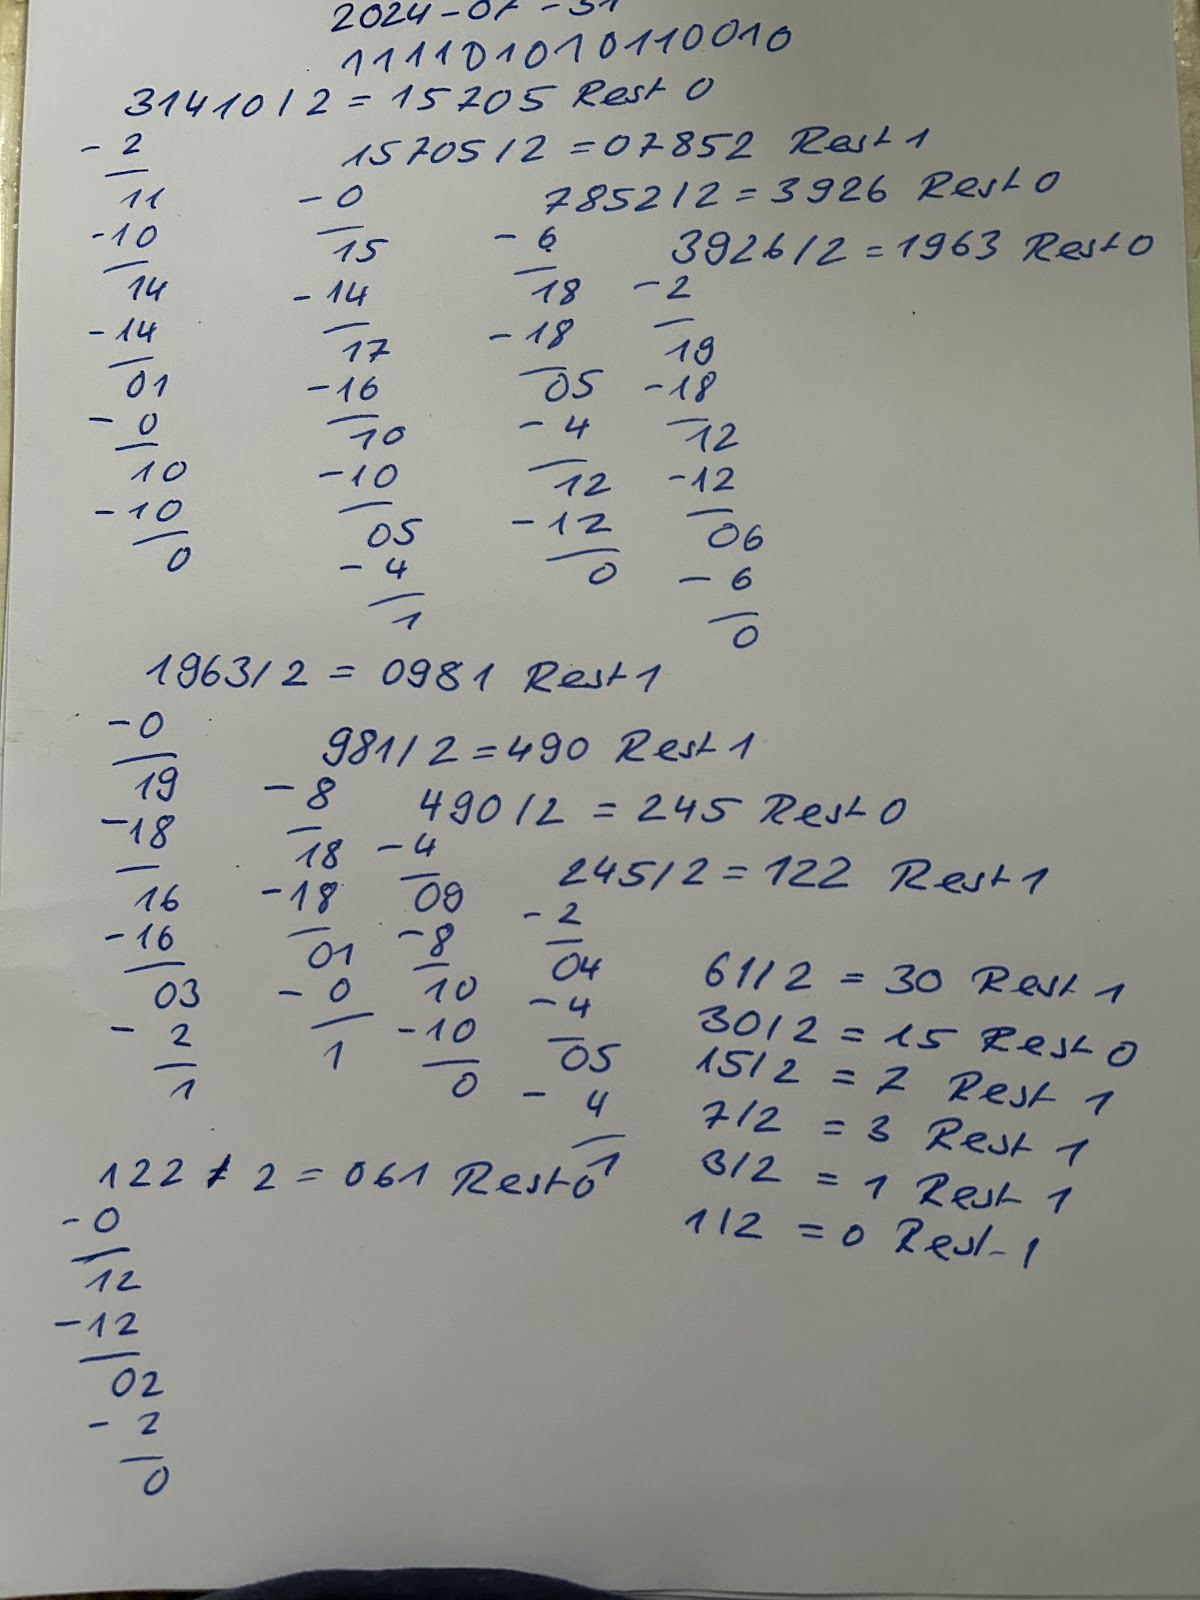 2024-07-31
111101010110010
31410/2 = 15705 Rest 0
- 2 15705/2 = 07852 Rest 1
11 - 0 7852/2 = 3926 Rest 0
-10 15 - 6 3926/2 = 1963 Rest 0
14 -14 18 -2
-14 17 -18 19
01 -16 05 -18
- 0 10 - 4 12
10 -10 12 -12
-10 05 -12 06
0 - 4 0 - 6
1 0
1963/2 = 0981 Rest 1
-0 981/2 = 490 Rest 1
19 - 8 490/2 = 245 Rest 0
-18 18 -4 245/2 = 122 Rest 1
16 -18 09 - 2
-16 01 -8 04 61/2 = 30 Rest 1
03 - 0 10 -4 30/2 = 15 Rest 0
- 2 1 -10 05 15/2 = 7 Rest 1
1 0 - 4 7/2 = 3 Rest 1
1 3/2 = 1 Rest 1
122 / 2 = 061 Rest 0
-0 1/2 = 0 Rest 1
12
-12
02
- 2
0